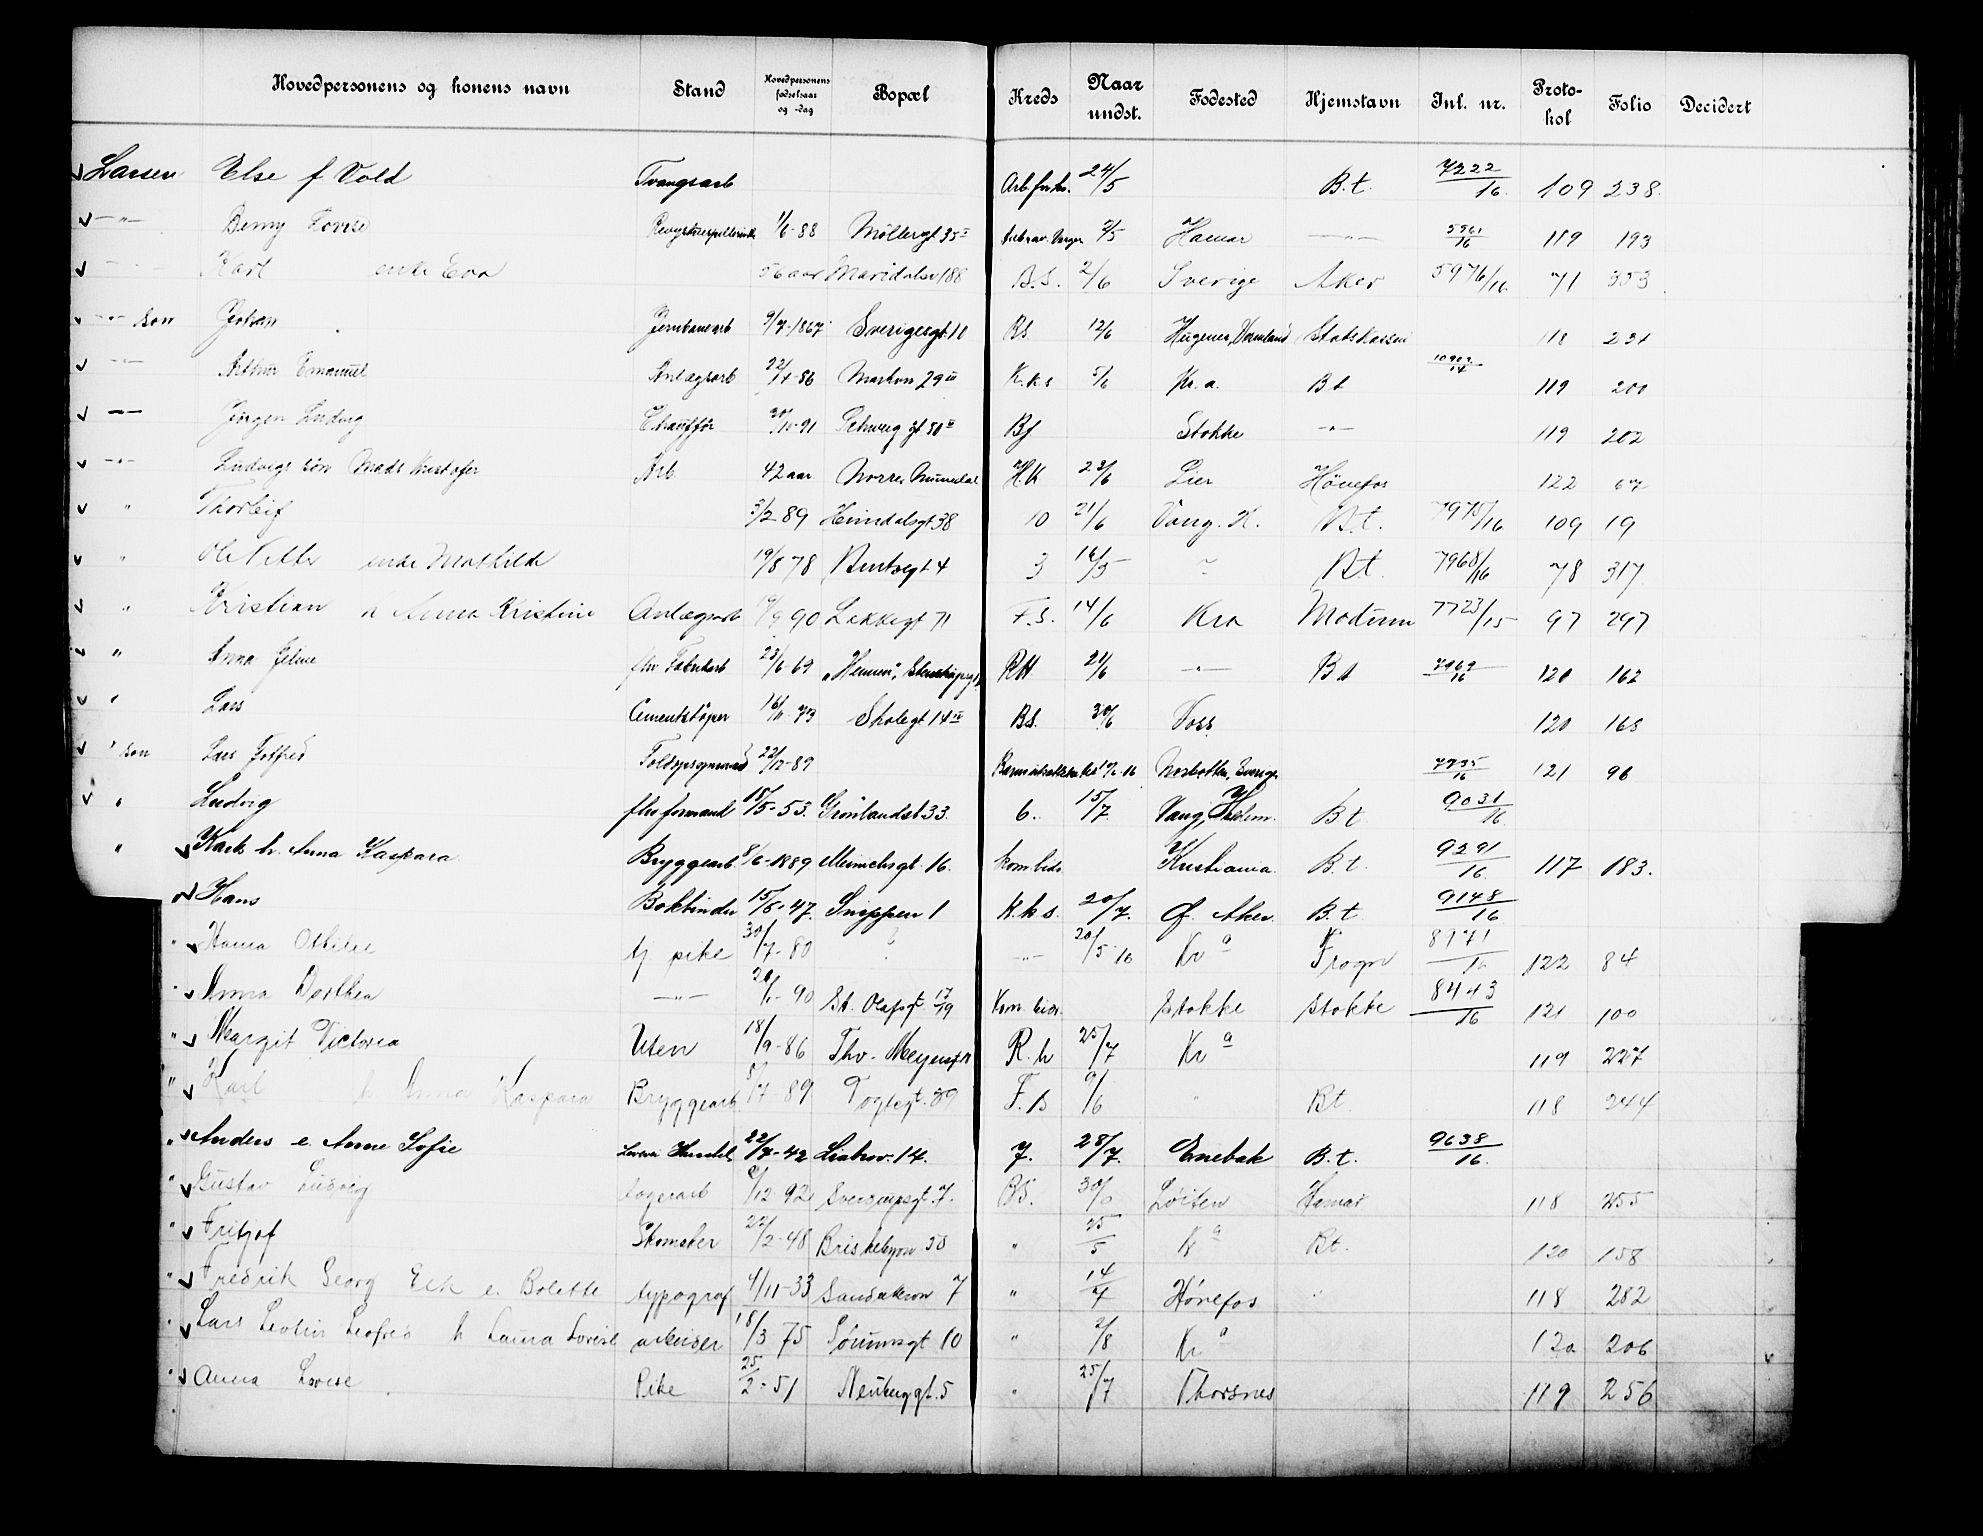 Hovedpersonens og konens navn Stand Hovedpersonens fødselsaar og -dag Bopæl Kreds Naar undst. Fødested Hjemstavn Jnl. nr. Proto-kol Folio Decidert
Larsen Else f. Vold Tvangsarb 24/5 B.t. 7222/16 109 238.
—"— Benny Lovise 1/6-88 Møllergt 35 II 2/5 Hamar —"— 5961/16 119 193
Karl enke Eva 56 aar Maridalsv 188 B.S. 2/6 Sverige Aker 5976/16 71 353
—"— søn Johan Jernbanearb 9/7-1867 Sverigesgt. 10 B.S. 12/6 Statskassen 118 231
—"— Arthur Emanuel Anlægsarb 22/4-86 Markvn 29 III K.k.s 5/6 Kr.a. Bt 119 200
—"— Jørgen Ludvig Chauffør Schweigsgt 50 II Stokke —"— 119 202
—"— Ludvigs søn Mads Kristofer Arb 42 aar H.K 23/6 Lier Hønefos 122 67
" Thorleif 3/2 89 Heimdalsgt 38 10 21/6 Vang. H. B.t. 7975/16 109 19
" Ole Petter enke Mathilde 19/8 78 4 3 16/5 Bt. 7968/16 78 317
" Kristian h Anna Kristine Anlægsarb 90 Lakkegt 71 F.S. 14/6 Kra Modum 7723/15 97 297
" Anna Jeline fhv Fabrikarb 23/6-69 "Hjemmet", RH 21/6 —"— Bt 7969/16 120 162
" Lars Cementstøper 16/11-73 Skolegt 14 IV B.S. 30/6 Voss 120 165
" søn Lars Gotfred 22/12-89 Norbotten, Sverige 7795/16 121 96
" Ludvig fhv formand 18/5-53. Grønlandsl 33. 6. 15/7. Vang, Hedem. B.t 9031/16
" Karl h. Anna Kaspara Bryggearb 8/6-1889 Minchsgt. 16. Kristiania. B.t. 9291/16. 117 183.
Hans Bokbinder 15/5-47. Snippen 1 K.k s. 20/7. Ø. Aker. B.t. 9148/16
" Hanna Othilie tj pike 30/7-80 —"— 20/5 16 Kr a Frogn 8971/16 122 84
" Anna Dorthea —"— 90 St. Olafsgt 17/19 Stokke Stokke 8443/16 121 100
" Margit Victoria Uten 18/9-86 Thv. Meyersgt R. h 25/7 Kr a 119 227
" Karl h Anna Kaspara Bryggearb 89 Togtegt. 39 F. s 9/6 " Bt. 118 244
" Anders e. Anne Sofie 22/7-42 Liabrov. 14. 7. 28/7. Enebak B.t. 9638/16.
" Gustav Ludvig Sverdrupsgt. 7. B.S. 30/6 Løiten Hamar 118 255
" Fritjof Skomaker 22/2-48 Briskebyvn 38 " 25/5 Kr a Bt. 120 158
" Fredrik Georg Eck e. Bolette typograf 4/11-33 Sandakervn 7 " 14/7 Hønefos " 118 282
" Lars h Laura Lovise arbeider 18/3 75 Sørumsgt 10 " 2/8 Kr a 120 206
" Anna Lovise Pike 25/2-51 Neuberggt. 5 " 25/7 Thorsnes 119 256